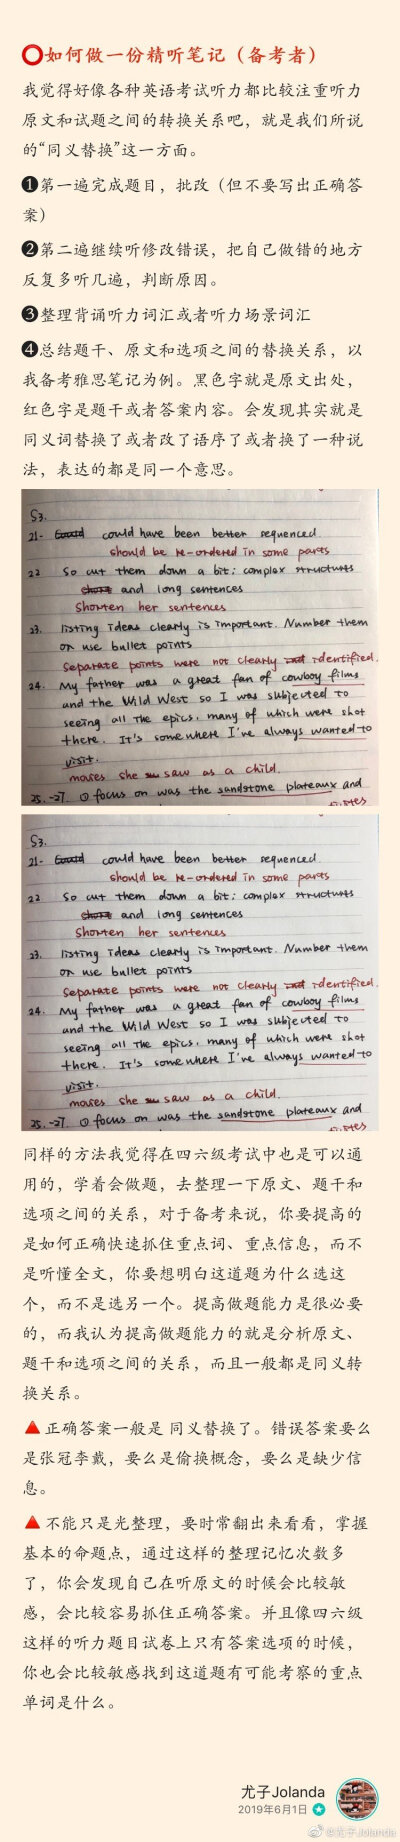 ⭕如何做一份精听笔记（备考者）
我觉得好像各种英语考试听力都比较注重听力
原文和试题之间的转换关系吧，就是我们所说
的“同义替换”这一方面。
❶第一遍完成题目，批改（但不要写出正确答
案）
❷第二遍继续听修改错误，把自己做错的地方
反复多听几遍，判断原因。
❸整理背诵听力词汇或者听力场景词汇
❹总结题干、原文和选项之间的替换关系，以
我备考雅思笔记为例。黑色字就是原文出处，
红色字是题干或者答案内容。会发现其实就是
同义词替换了或者改了语序了或者换了一种说
法，表达的都是同一个意思。
S3.
21- could have been better sequenced.
should be re-ordered in some parts
22 So cut them down a bit: complex structures
and long sentences
Shorten her sentences
23. listing ideas clearly is important. Number them
or use bullet points
Separate points were not clearly identified.
24. My father was a great fan of cowboy films
and the Wild West so I was subjected to
seeing all the epics, many of which were shot
there. It's somewhere I've always wanted to
visit.
movies she saw as a child.
25.-27. ① focus on was the sandstone plateaux and
S3.
21- could have been better sequenced.
should be re-ordered in some parts
22 So cut them down a bit: complex structures
and long sentences
Shorten her sentences
23. listing ideas clearly is important. Number them
or use bullet points
Separate points were not clearly identified.
24. My father was a great fan of cowboy films
and the Wild West so I was subjected to
seeing all the epics, many of which were shot
there. It's somewhere I've always wanted to
visit.
movies she saw as a child.
25.-27. ① focus on was the sandstone plateaux and
同样的方法我觉得在四六级考试中也是可以通
用的，学着会做题，去整理一下原文、题干和
选项之间的关系，对于备考来说，你要提高的
是如何正确快速抓住重点词、重点信息，而不
是听懂全文，你要想明白这道题为什么选这
个，而不是选另一个。提高做题能力是很必要
的，而我认为提高做题能力的就是分析原文、
题干和选项之间的关系，而且一般都是同义转
换关系。
🔺正确答案一般是 同义替换了。错误答案要么
是张冠李戴，要么是偷换概念，要么是缺少信
息。
🔺不能只是光整理，要时常翻出来看看，掌握
基本的命题点，通过这样的整理记忆次数多
了，你会发现自己在听原文的时候会比较敏
感，会比较容易抓住正确答案。并且像四六级
这样的听力题目试卷上只有答案选项的时候，
你也会比较敏感找到这道题有可能考察的重点
单词是什么。
尤子Jolanda
2019年6月1日
@尤子Jolanda